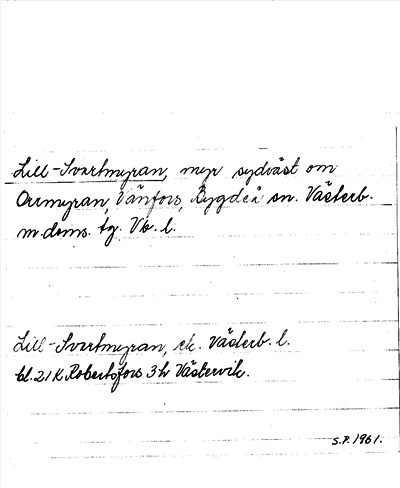 Lill-Svartmyran, myr sydväst om
Ormyran, Vänfors, Bygdeå sn. Västerb.
m. doms. tg. Vb. l.
Lill-Svartmyran, ek. Västerb. l.
bl. 21 K Robertsfors 3 h Västervik.
S.P. 1961.